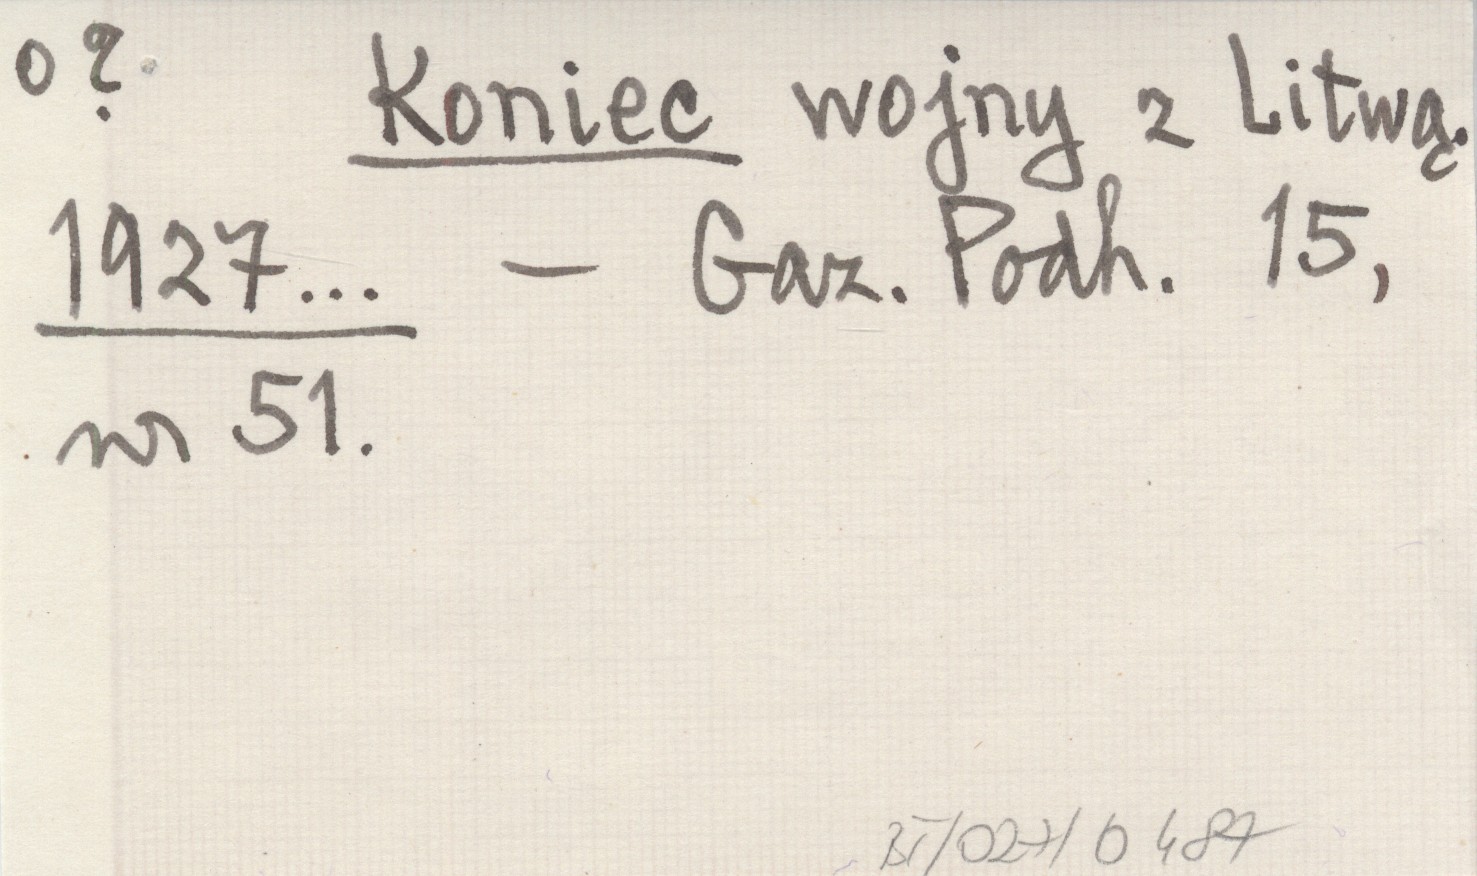 o? Koniec wojny z Litwą.
1927... — Gaz. Podh. 15,
nr 51.
BT/027/0487